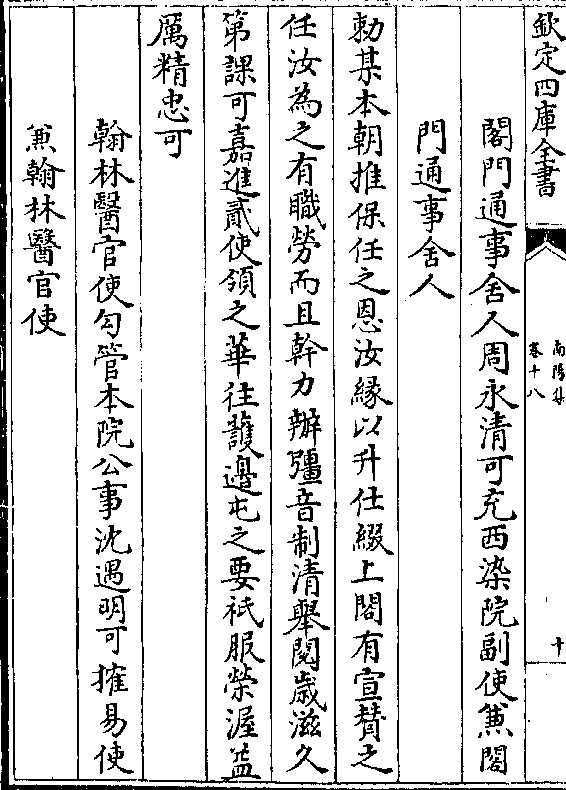 欽定四庫全書
南陽集
卷十八
十
閣門通事舍人周永清可充西染院副使兼閣
門通事舍人
勅某本朝推保任之恩汝縁以升仕綴上閣有宣賛之
任汝為之有職勞而且幹力辦彊音制清舉閲歳滋久
第課可嘉進貳使領之華往䕶邊屯之要祇服榮渥益
厲精忠可
翰林醫官使勾管本院公事沈遇明可㩁易使
兼翰林醫官使